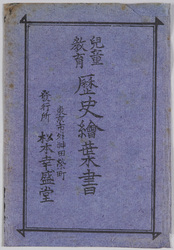 兒童
教育
歷史繪葉書
東京市外神田黎町
發行所 松木幸盛堂